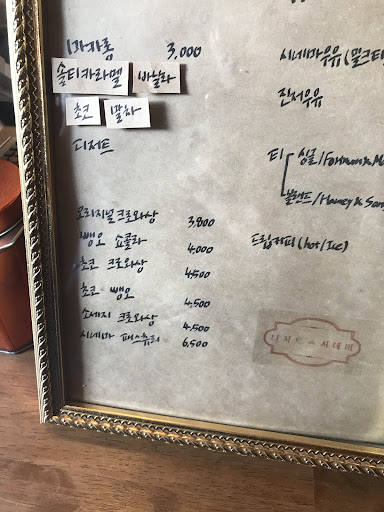 마카롱 3,000
솔티카라멜 바닐라
초코 말차
디저트
오리지널크로와상 3,800
뺑오 쇼콜라 4,000
초코 크로와상 4,500
초코 뺑오 4,500
소세지 크로와상 4,500
시네마 패스츄리 6,500
시네마우유 (밀크티
진저우유
티
싱글/
블렌드/Harney & Son
드립커피 (hot/Ice)